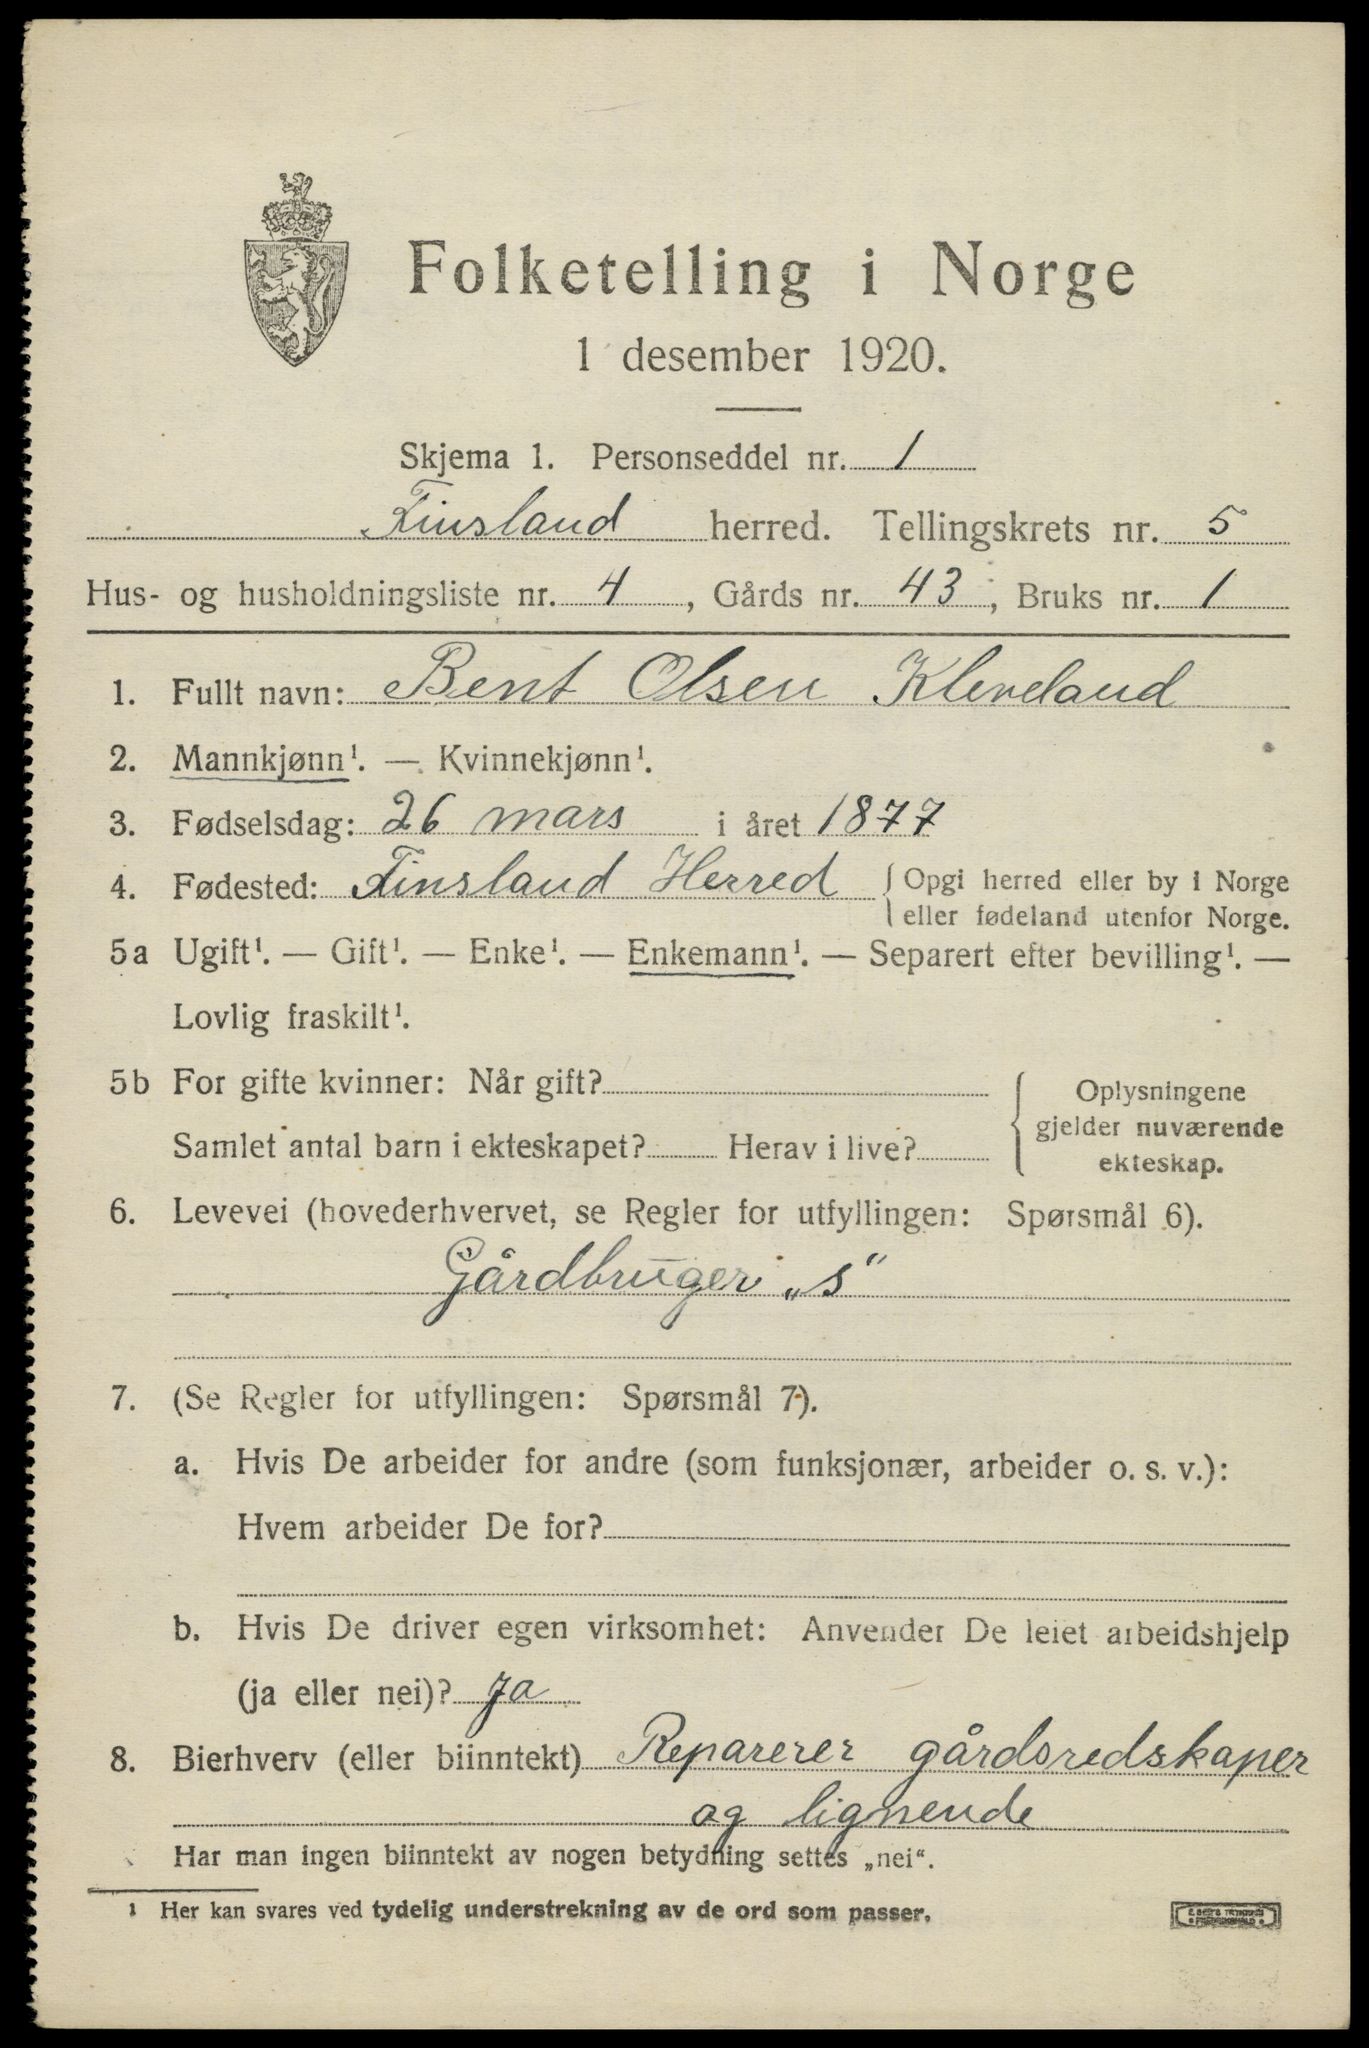 Folketelling i Norge
1 desember 1920.
Skjema 1. Personseddel nr. 1
Finsland herred. Tellingskrets nr. 5
Hus- og husholdningsliste nr. 4, Gårds nr. 43, Bruks nr. 1
1. Fullt navn: Bent Olsen Kleveland
2. Mannkjønn¹. — Kvinnekjønn¹.
3. Fødselsdag: 26 mars i året 1877
4. Fødested: Finsland Herred { Opgi herred eller by i Norge
eller fødeland utenfor Norge.
5a Ugift¹. — Gift¹. — Enke¹. — Enkemann¹. — Separert efter bevilling¹. —
Lovlig fraskilt¹.
5b For gifte kvinner: Når gift?
Samlet antal barn i ekteskapet? Herav i live?
Oplysningene
gjelder nuværende
ekteskap.
6. Levevei (hovederhvervet, se Regler for utfyllingen: Spørsmål 6).
Gårdbruger „s"
7. (Se Regler for utfyllingen: Spørsmål 7).
a. Hvis De arbeider for andre (som funksjonær, arbeider o. s. v.):
Hvem arbeider De for?
b. Hvis De driver egen virksomhet: Anvender De leiet arbeidshjelp
(ja eller nei)? Ja
8. Bierhverv (eller biinntekt) Reparerer gårdsredskaper
og lignende
Har man ingen biinntekt av nogen betydning settes „nei".
¹ Her kan svares ved tydelig understrekning av de ord som passer.